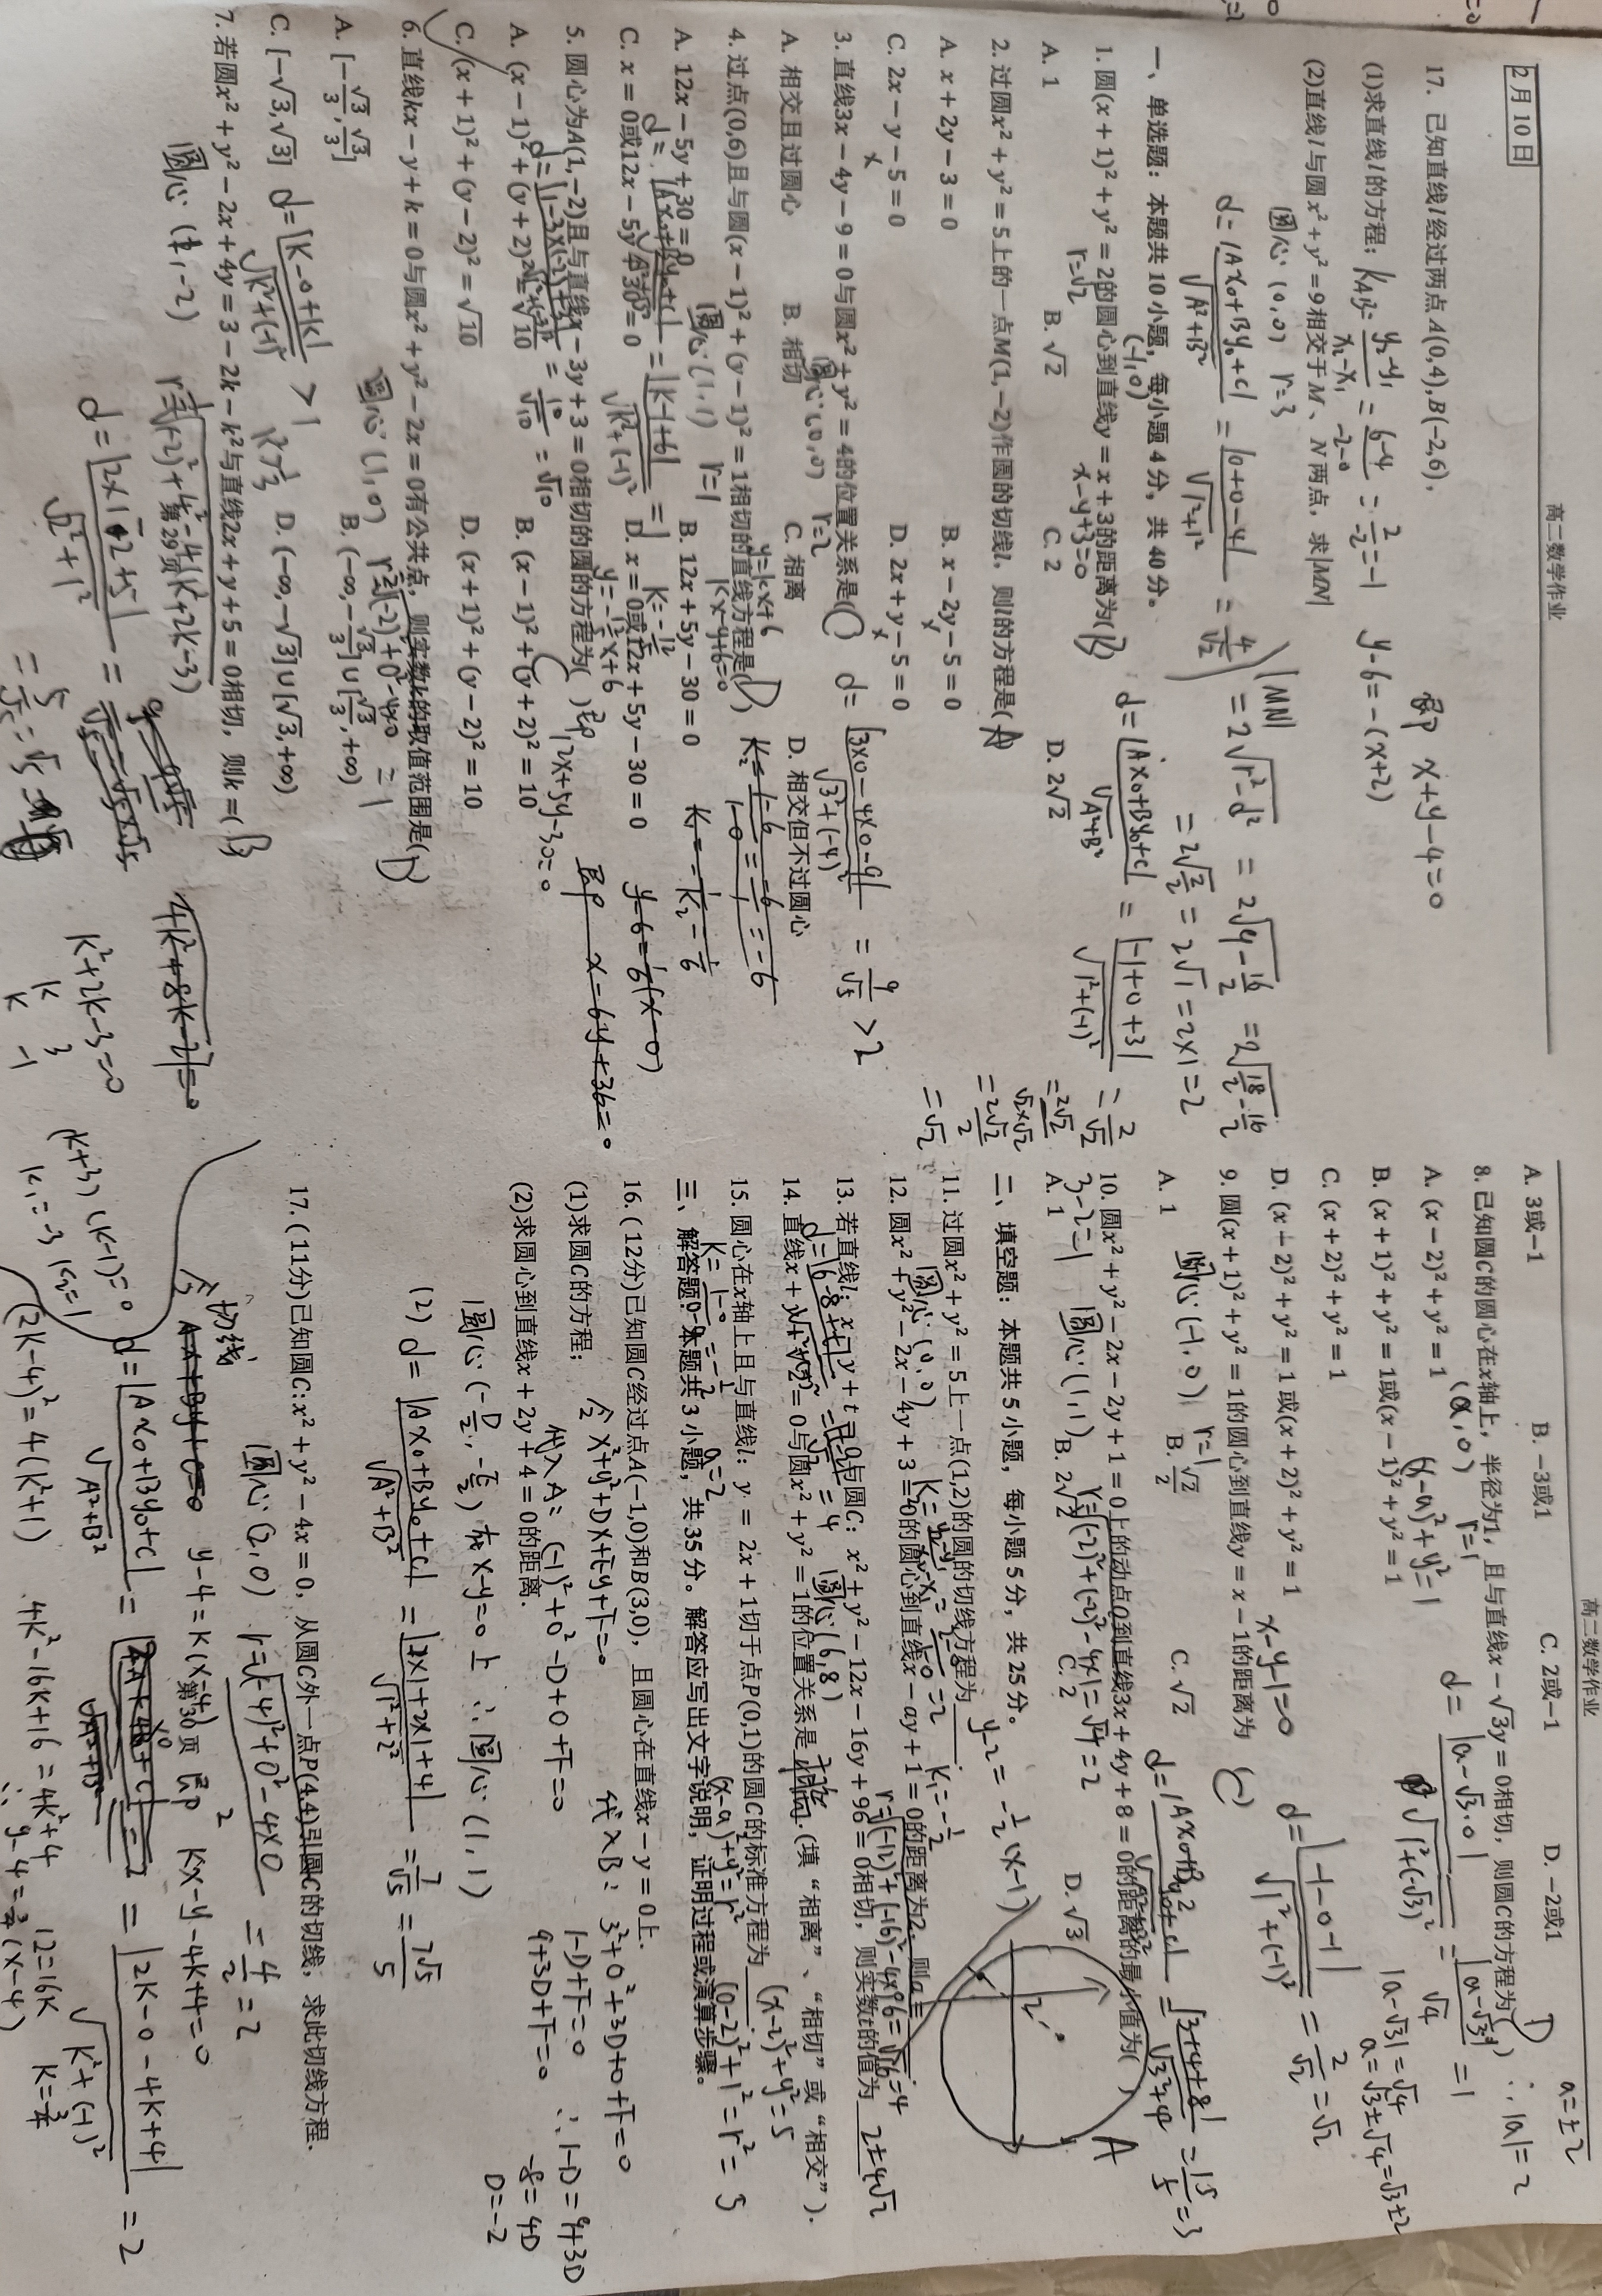 高二数学作业
2月10日
17. 已知直线l经过两点A(0,4),B(-2,6),
(1)求直线l的方程;
k_AB=(y₂-y₁)/(x₂-x₁)=(6-4)/(-2-0)=2/(-2)=-1
y-6=-(x+2)
即 x+y-4=0
(2)直线l与圆x²+y²=9相交于M、N两点,求|MN|
圆心(0,0) r=3
d=|Ax₀+By₀+C|/√(A²+B²)=|0+0-4|/√(1²+1²)=4/√2
|MN|=2√(r²-d²)=2√(9-16/2)=2√(18/2-16/2)
=2√(2/2)=2√1=2×1=2
一、单选题:本题共10小题,每小题4分,共40分。
1. 圆(x+1)²+y²=2的圆心到直线y=x+3的距离为(B)
(-1,0)
r=√2
x-y+3=0
A. 1 B. √2 C. 2 D. 2√2
d=|Ax₀+By₀+C|/√(A²+B²)=|-1+0+3|/√(1²+(-1)²)=2/√2
=2√2/(√2×√2)
=2√2/2
=√2
2. 过圆x²+y²=5上的一点M(1,-2)作圆的切线l,则l的方程是(A)
A. x+2y-3=0 B. x-2y-5=0
C. 2x-y-5=0 D. 2x+y-5=0
3. 直线3x-4y-9=0与圆x²+y²=4的位置关系是( )
圆心(0,0) r=2
d=|3×0-4×0-9|/√(3²+(-4)²)=9/√5>2
A. 相交且过圆心 B. 相切 C. 相离 D. 相交但不过圆心
4. 过点(0,6)且与圆(x-1)²+(y-1)²=1相切的直线方程是(D)
圆心(1,1) r=1
y=kx+6
kx-y+6=0
A. 12x-5y+30=0 B. 12x+5y-30=0
C. x=0或12x-5y+30=0 D. x=0或12x+5y-30=0
=|k-1+6|/√(k²+(-1)²)=1
k=-12/5
y=-12/5x+6
即12x+5y-30=0
y-6=1/6(x-0)
即 x-6y+36=0
5. 圆心为A(1,-2)且与直线x-3y+3=0相切的圆的方程为( )
d=|1-3×(-2)+3|/√(1²+(-3)²)=10/√10=√10
A. (x-1)²+(y+2)²=√10 B. (x-1)²+(y+2)²=10
C. (x+1)²+(y-2)²=√10 D. (x+1)²+(y-2)²=10
6. 直线kx-y+k=0与圆x²+y²-2x=0有公共点,则实数k的取值范围是(D)
圆心(1,0)
A. [-√3/3,√3/3] B. (-∞,-√3/3]∪[√3/3,+∞)
C. [-√3,√3] D. (-∞,-√3]∪[√3,+∞)
d=|k-0+k|/√(k²+(-1)²)>1
k²>1/3
7. 若圆x²+y²-2x+4y=3-2k-k²与直线2x+y+5=0相切,则k=(B)
圆心(1,-2)
d=|2×1-2+5|/√(2²+1²)
k²+2k-3=0
k 3
k -1
(k+3)(k-1)=0
k₁=-3 k₂=1
第29页
高二数学作业
A. 3或-1 B. -3或1 C. 2或-1 D. -2或1
8. 已知圆C的圆心在x轴上,半径为1,且与直线x-√3y=0相切,则圆C的方程为(D)
(a,0) r=1
(x-a)²+y²=1
A. (x-2)²+y²=1
B. (x+1)²+y²=1或(x-1)²+y²=1
C. (x+2)²+y²=1
D. (x-2)²+y²=1或(x+2)²+y²=1
d=|a-√3·0|/√(1²+(-√3)²)=|a-√3|/√4=1
|a-√3|=√4
a=√3±√4=√3±2
∴|a|=2
a=±2
9. 圆(x+1)²+y²=1的圆心到直线y=x-1的距离为( )
圆心(-1,0) r=1
x-y-1=0
A. 1 B. √2/2 C. √2 D. √3
d=|-1-0-1|/√(1²+(-1)²)=2/√2=√2
10. 圆x²+y²-2x-2y+1=0上的动点Q到直线3x+4y+8=0的距离的最小值为( )
3-2=1
圆心(1,1)
A. 1 B. 2√2 C. 2
=|3+4+8|/√(3²+4²)=15/5=3
A
二、填空题:本题共5小题,每小题5分,共25分。
11. 过圆x²+y²=5上一点(1,2)的圆的切线方程为 y-2=-1/2(x-1)
圆心(0,0)
k₁=-1/2
12. 圆x²+y²-2x-4y+3=0的圆心到直线x-ay+1=0的距离为2,则a=
13. 若直线l:x+y+t=0与圆C:x²+y²-12x-16y+96=0相切,则实数t的值为 2±4√2
圆心(6,8)
14. 直线x+y+2=0与圆x²+y²=1的位置关系是 .(填“相离”、“相切”或“相交”).
15. 圆心在x轴上且与直线l:y=2x+1切于点P(0,1)的圆C的标准方程为 (x-2)²+y²=5
a=2
(x-a)²+y²=r²
(0-2)²+1²=r²=5
三、解答题:本题共3小题,共35分。解答应写出文字说明,证明过程或演算步骤。
16. (12分)已知圆C经过点A(-1,0)和B(3,0),且圆心在直线x-y=0上.
(1)求圆C的方程;
(2)求圆心到直线x+2y+4=0的距离.
令x²+y²+Dx+Ey+F=0
代入A:(-1)²+0²-D+0+F=0
代入B:3²+0²+3D+0+F=0
1-D+F=0
9+3D+F=0
∴1-D=9+3D
-8=4D
D=-2
圆心(-D/2,-E/2)在x-y=0上 ∴圆心(1,1)
(2) d=|Ax₀+By₀+C|/√(A²+B²)=|1×1+2×1+4|/√(1²+2²)=7/√5=7√5/5
17. (11分)已知圆C:x²+y²-4x=0,从圆C外一点P(4,4)引圆C的切线,求此切线方程.
圆心(2,0) =4/2=2
令切线
y-4=k(x-4) 即 kx-y-4k+4=0
d=|Ax₀+By₀+C|/√(A²+B²)=|2k-0-4k+4|/√(k²+(-1)²)=2
(2k-4)²=4(k²+1)
4k²-16k+16=4k²+4
12=16k
k=3/4
∴y-4=3/4(x-4)
第30页